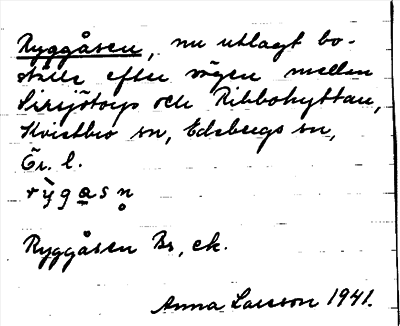 Ryggåsen, nu utlagt bo-
ställe efter vägen mellan
Sirsjötorp och Ribbohyttan,
Kvistbro sn, Edsbergs sn,
Ör. l.
rỳgạsn̥
Ryggåsen Bs, ek.
Anna Larsson 1941.